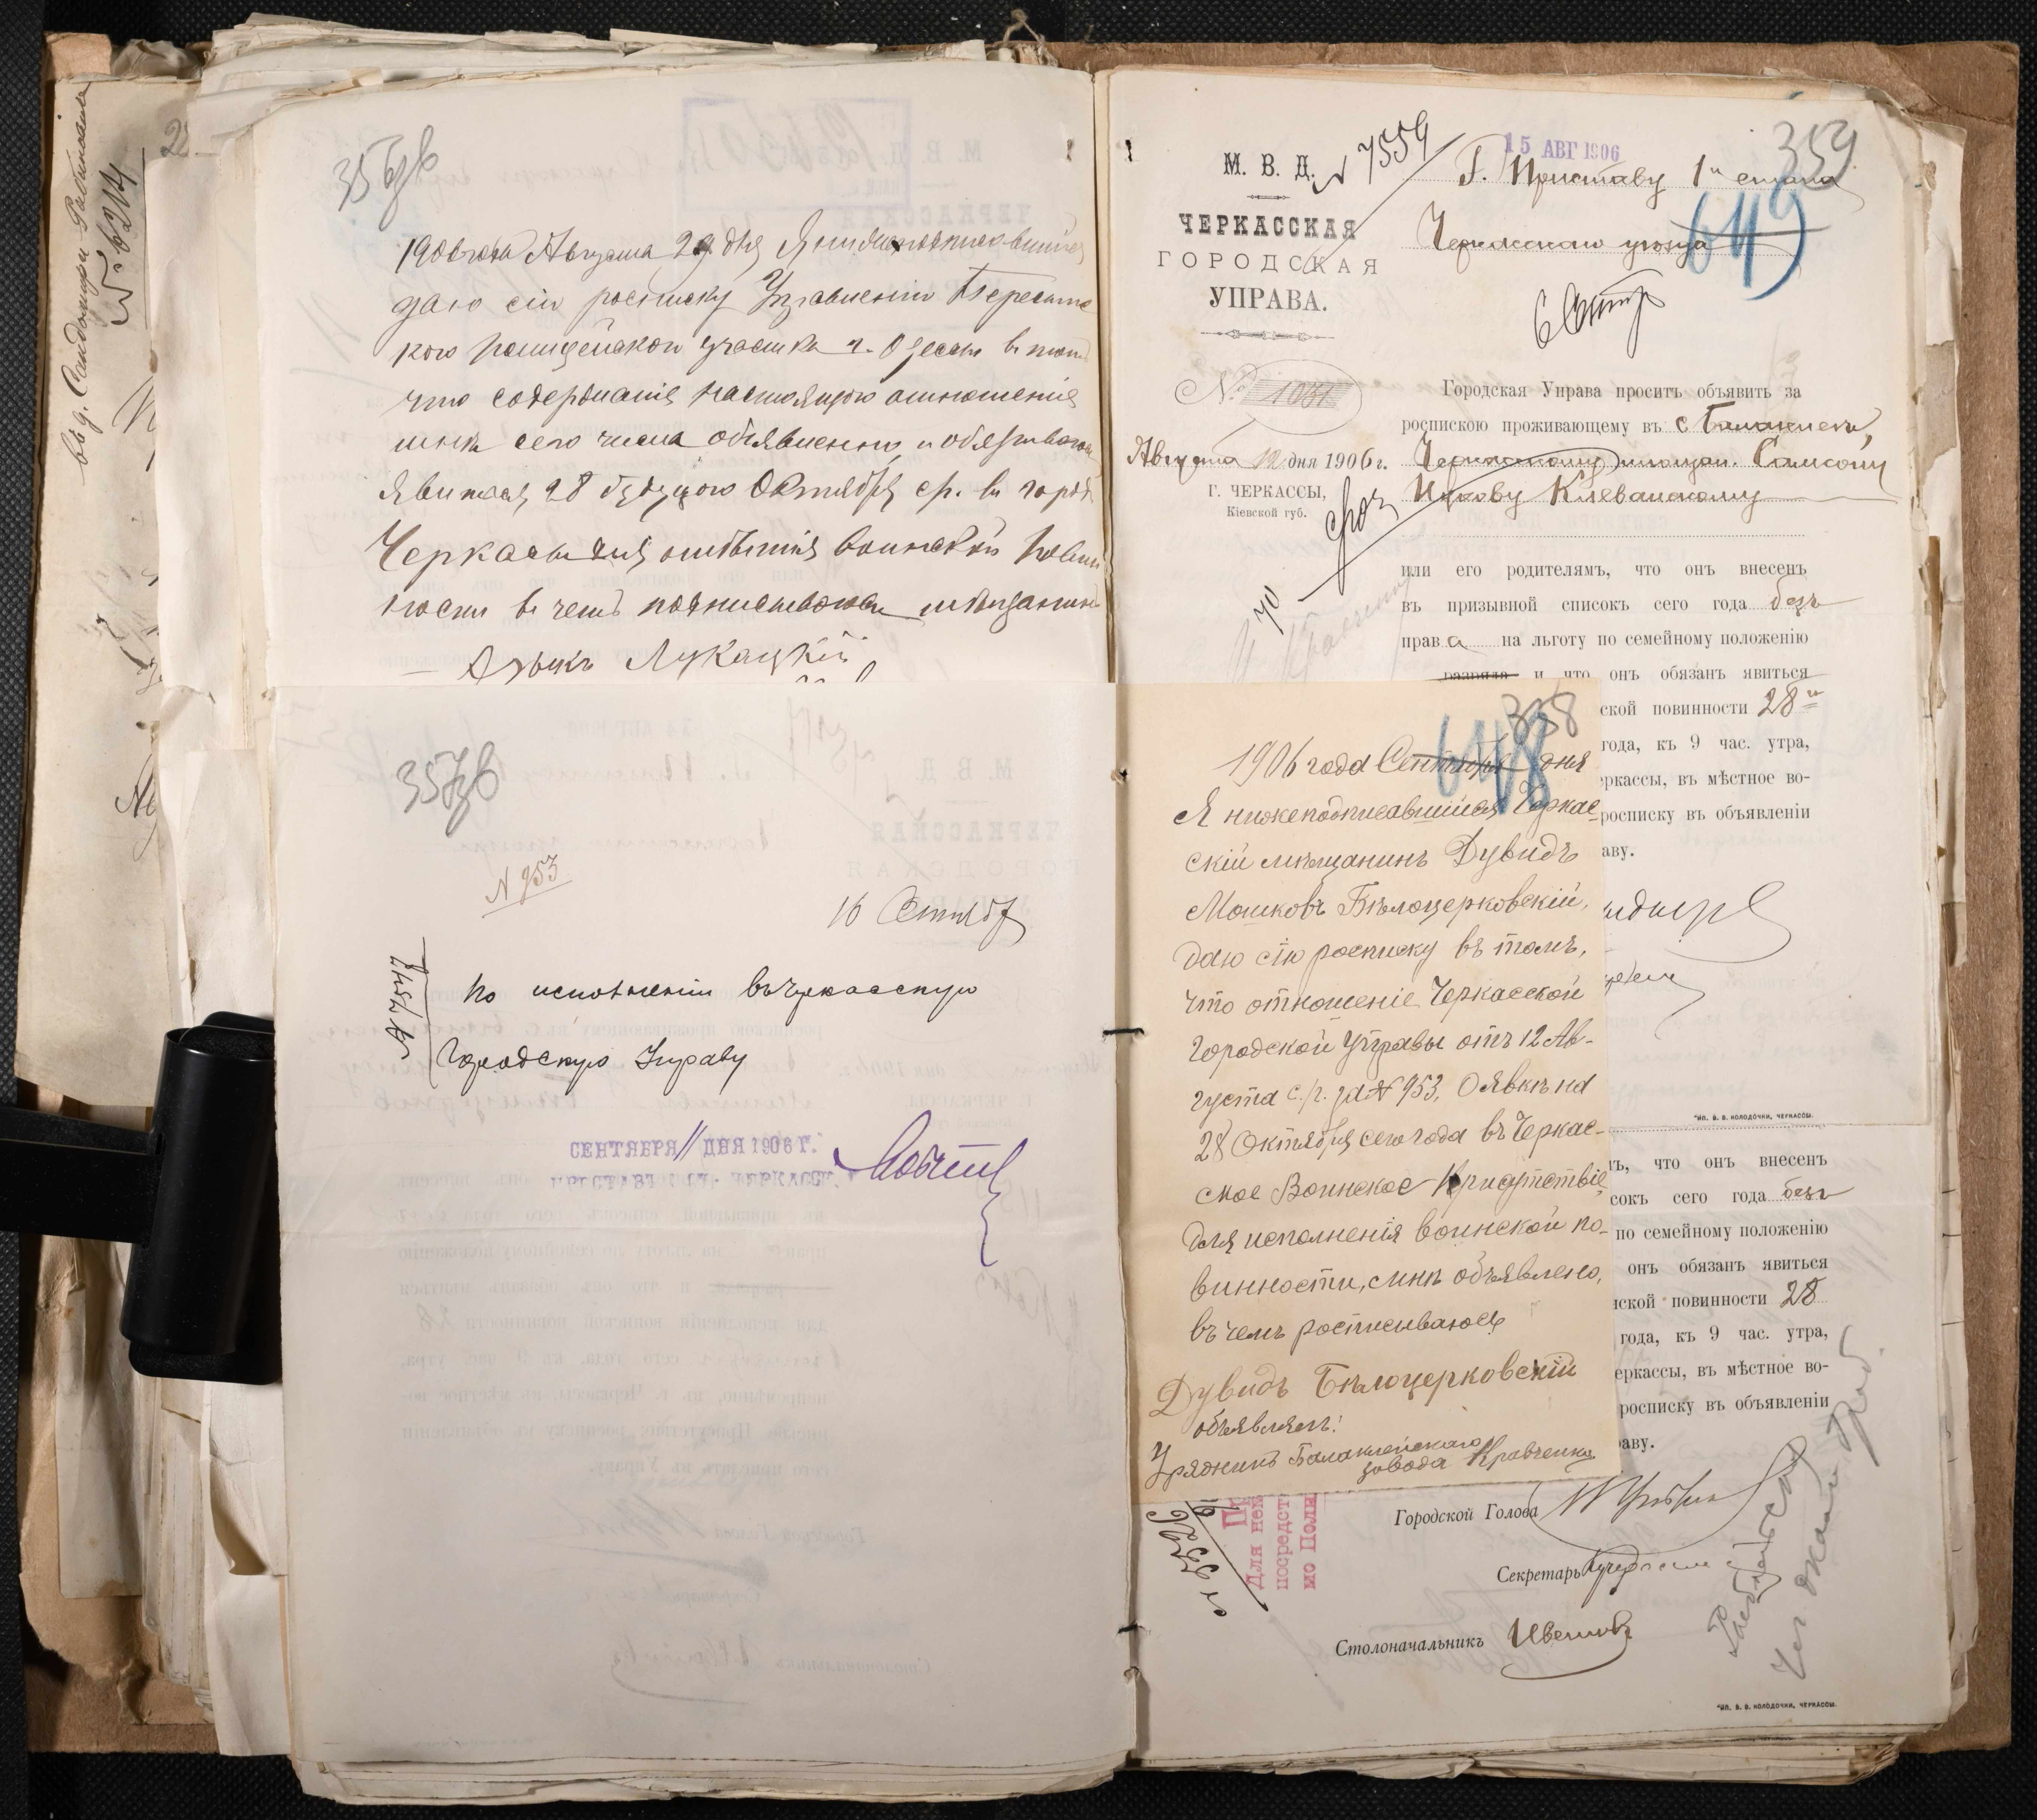 въ д. Сандомири Рабиновича
№ 6214
356об
1906 года Августа 29 дня Я нижеподписавшийся
даю сію росписку Управленію Пересыпс
кого Полицейскаго участка г. Одессы въ томъ
что содержаніе настоящаго отношенія
мнѣ сего числа объявленно и обязываюсь
явиться 28 будущого Октября с/г. въ городъ
Черкасы для отбытія воинской повин
ности въ чемъ подписываюсь мѣщанинъ
Лукацкій
357об
N 953
16 Сентяб
По исполненіи въ Черкасскую
Городскую Управу
СЕНТЯБРЯ 11 ДНЯ 1906 Г.
ПРИСТАВЪ 1 СТ. ЧЕРКАССК.
359
15 АВГ 1906
М. В. Д.
N 7559
Г. Приставу 1го стана
ЧЕРКАССКАЯ
ГОРОДСКАЯ
УПРАВА.
Черкасскаго уѣзда
649
6 Сентр
№ 1081
Городская Управа проситъ объявить за
роспискою проживающему въ с Балаклеѣ,
Августа 12 дня 1906 г.
Черкасскому мѣщан. Самсону
Г. ЧЕРКАССЫ,
Кіевской губ.
Ицкову Клеванскому
срок
или его родителямъ, что онъ внесенъ
въ призывной списокъ сего года безъ
права на льготу по семейному положенію
разряда и что онъ обязанъ явиться
ской повинности 28го
года, къ 9 час. утра,
еркассы, въ мѣстное во-
росписку въ объявленіи
аву.
ТИП. В. В. КОЛОДОЧКИ, ЧЕРКАССЫ.
358
648
1906 года Сентября дня
Я нижеподписавшійся Черкас
скій мѣщанинъ Дувидъ
Мошковъ Бѣлоцерковскій,
даю сію росписку въ томъ,
что отношеніе Черкасской
Городской Управы отъ 12 Ав-
густа с/г. за N 953, О явкѣ на
28 Октября сего года въ Черкас-
ское Воинское Присутствіе
для исполненія воинской по-
винности, мнѣ объявлено,
въ чемъ росписываюсь
Дувидъ Бѣлоцерковскій
объявлялъ:
Урядникъ Балаклейскаго
завода Кравченко
ъ, что онъ внесенъ
сокъ сего года безъ
по семейному положенію
онъ обязанъ явиться
нской повинности 28
года, къ 9 час. утра,
еркассы, въ мѣстное во-
росписку въ объявленіи
аву.
Для неп
посредст
мо Поли
Городской Голова
Секретарь
Столоначальникъ
ТИП. В. В. КОЛОДОЧКИ, ЧЕРКАССЫ.